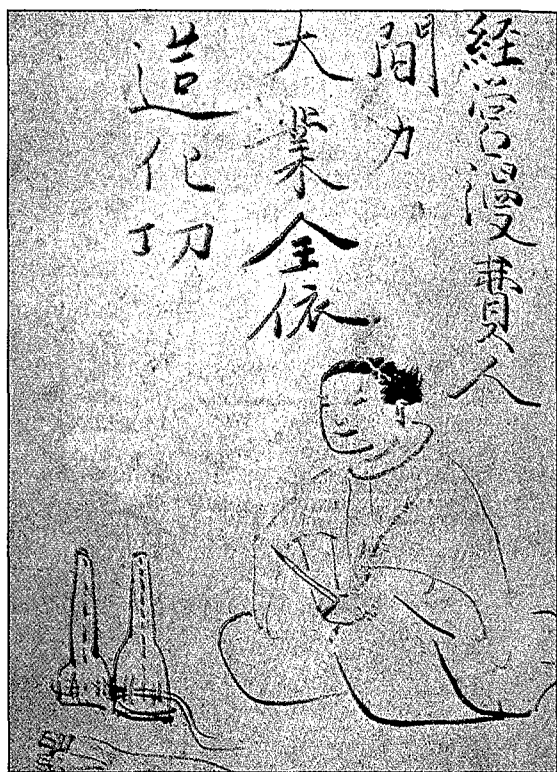 経営漫費人
間力
大業全依
造化功